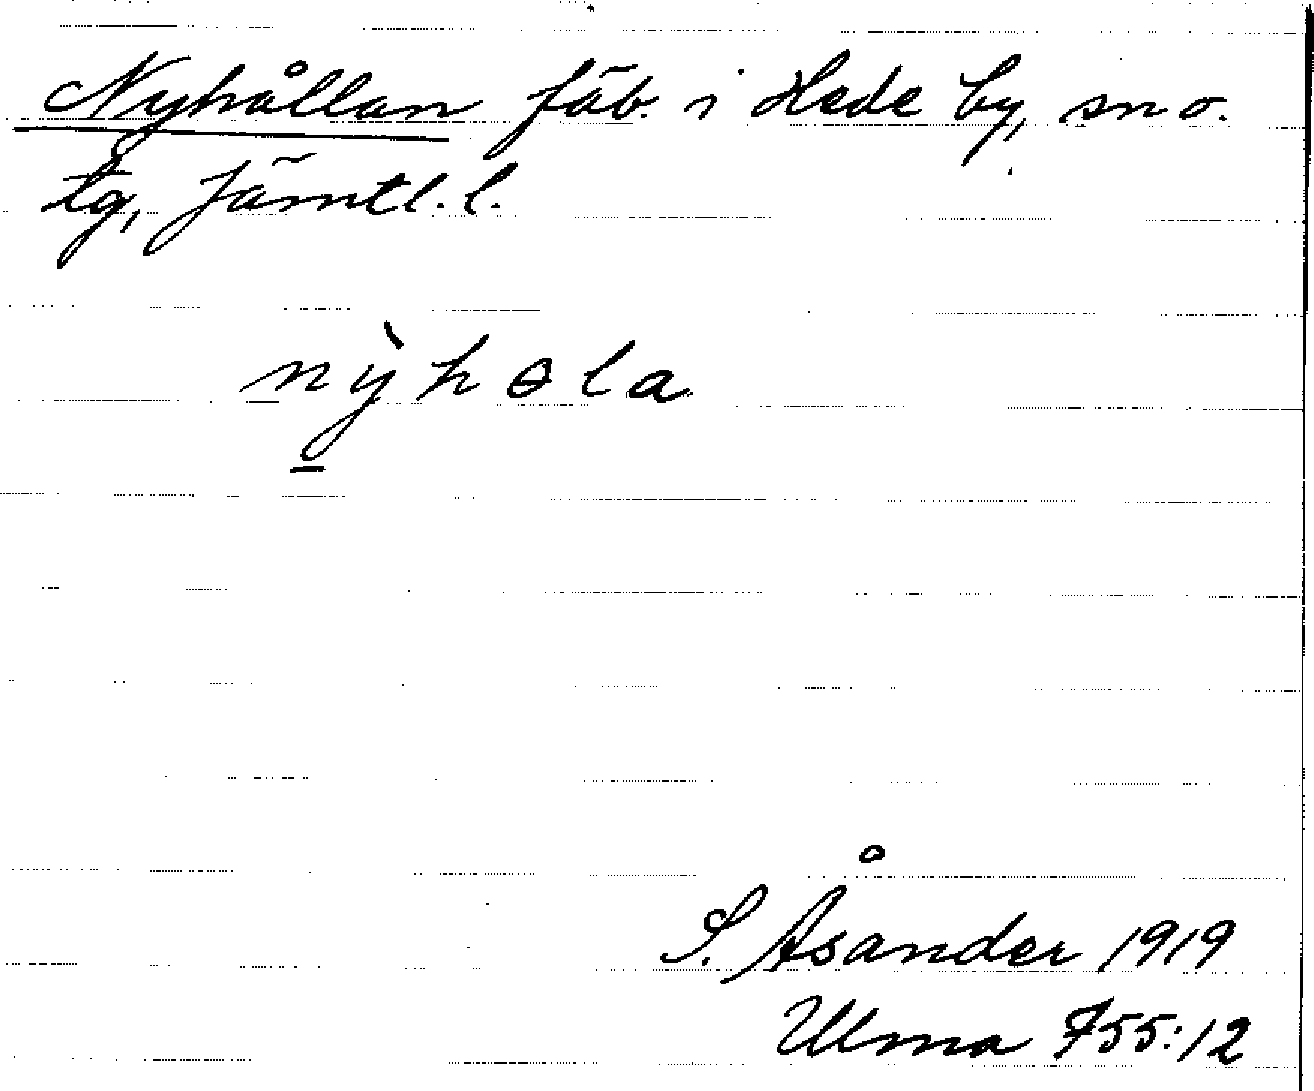 Nyhållan fäb. i Hede by, sn o.
tg, Jämtl. l.
nỳhɵla
S. Åsander 1919
Ulma 755:12